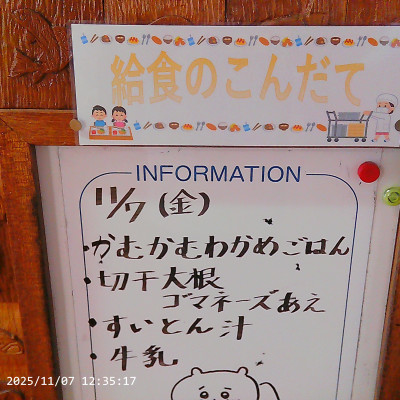 給食のこんだて
INFORMATION
11/7(金)
・かむかむわかめごはん
・切干大根
ゴマネーズあえ
・すいとん汁
・牛乳
2025/11/07 12:35:17